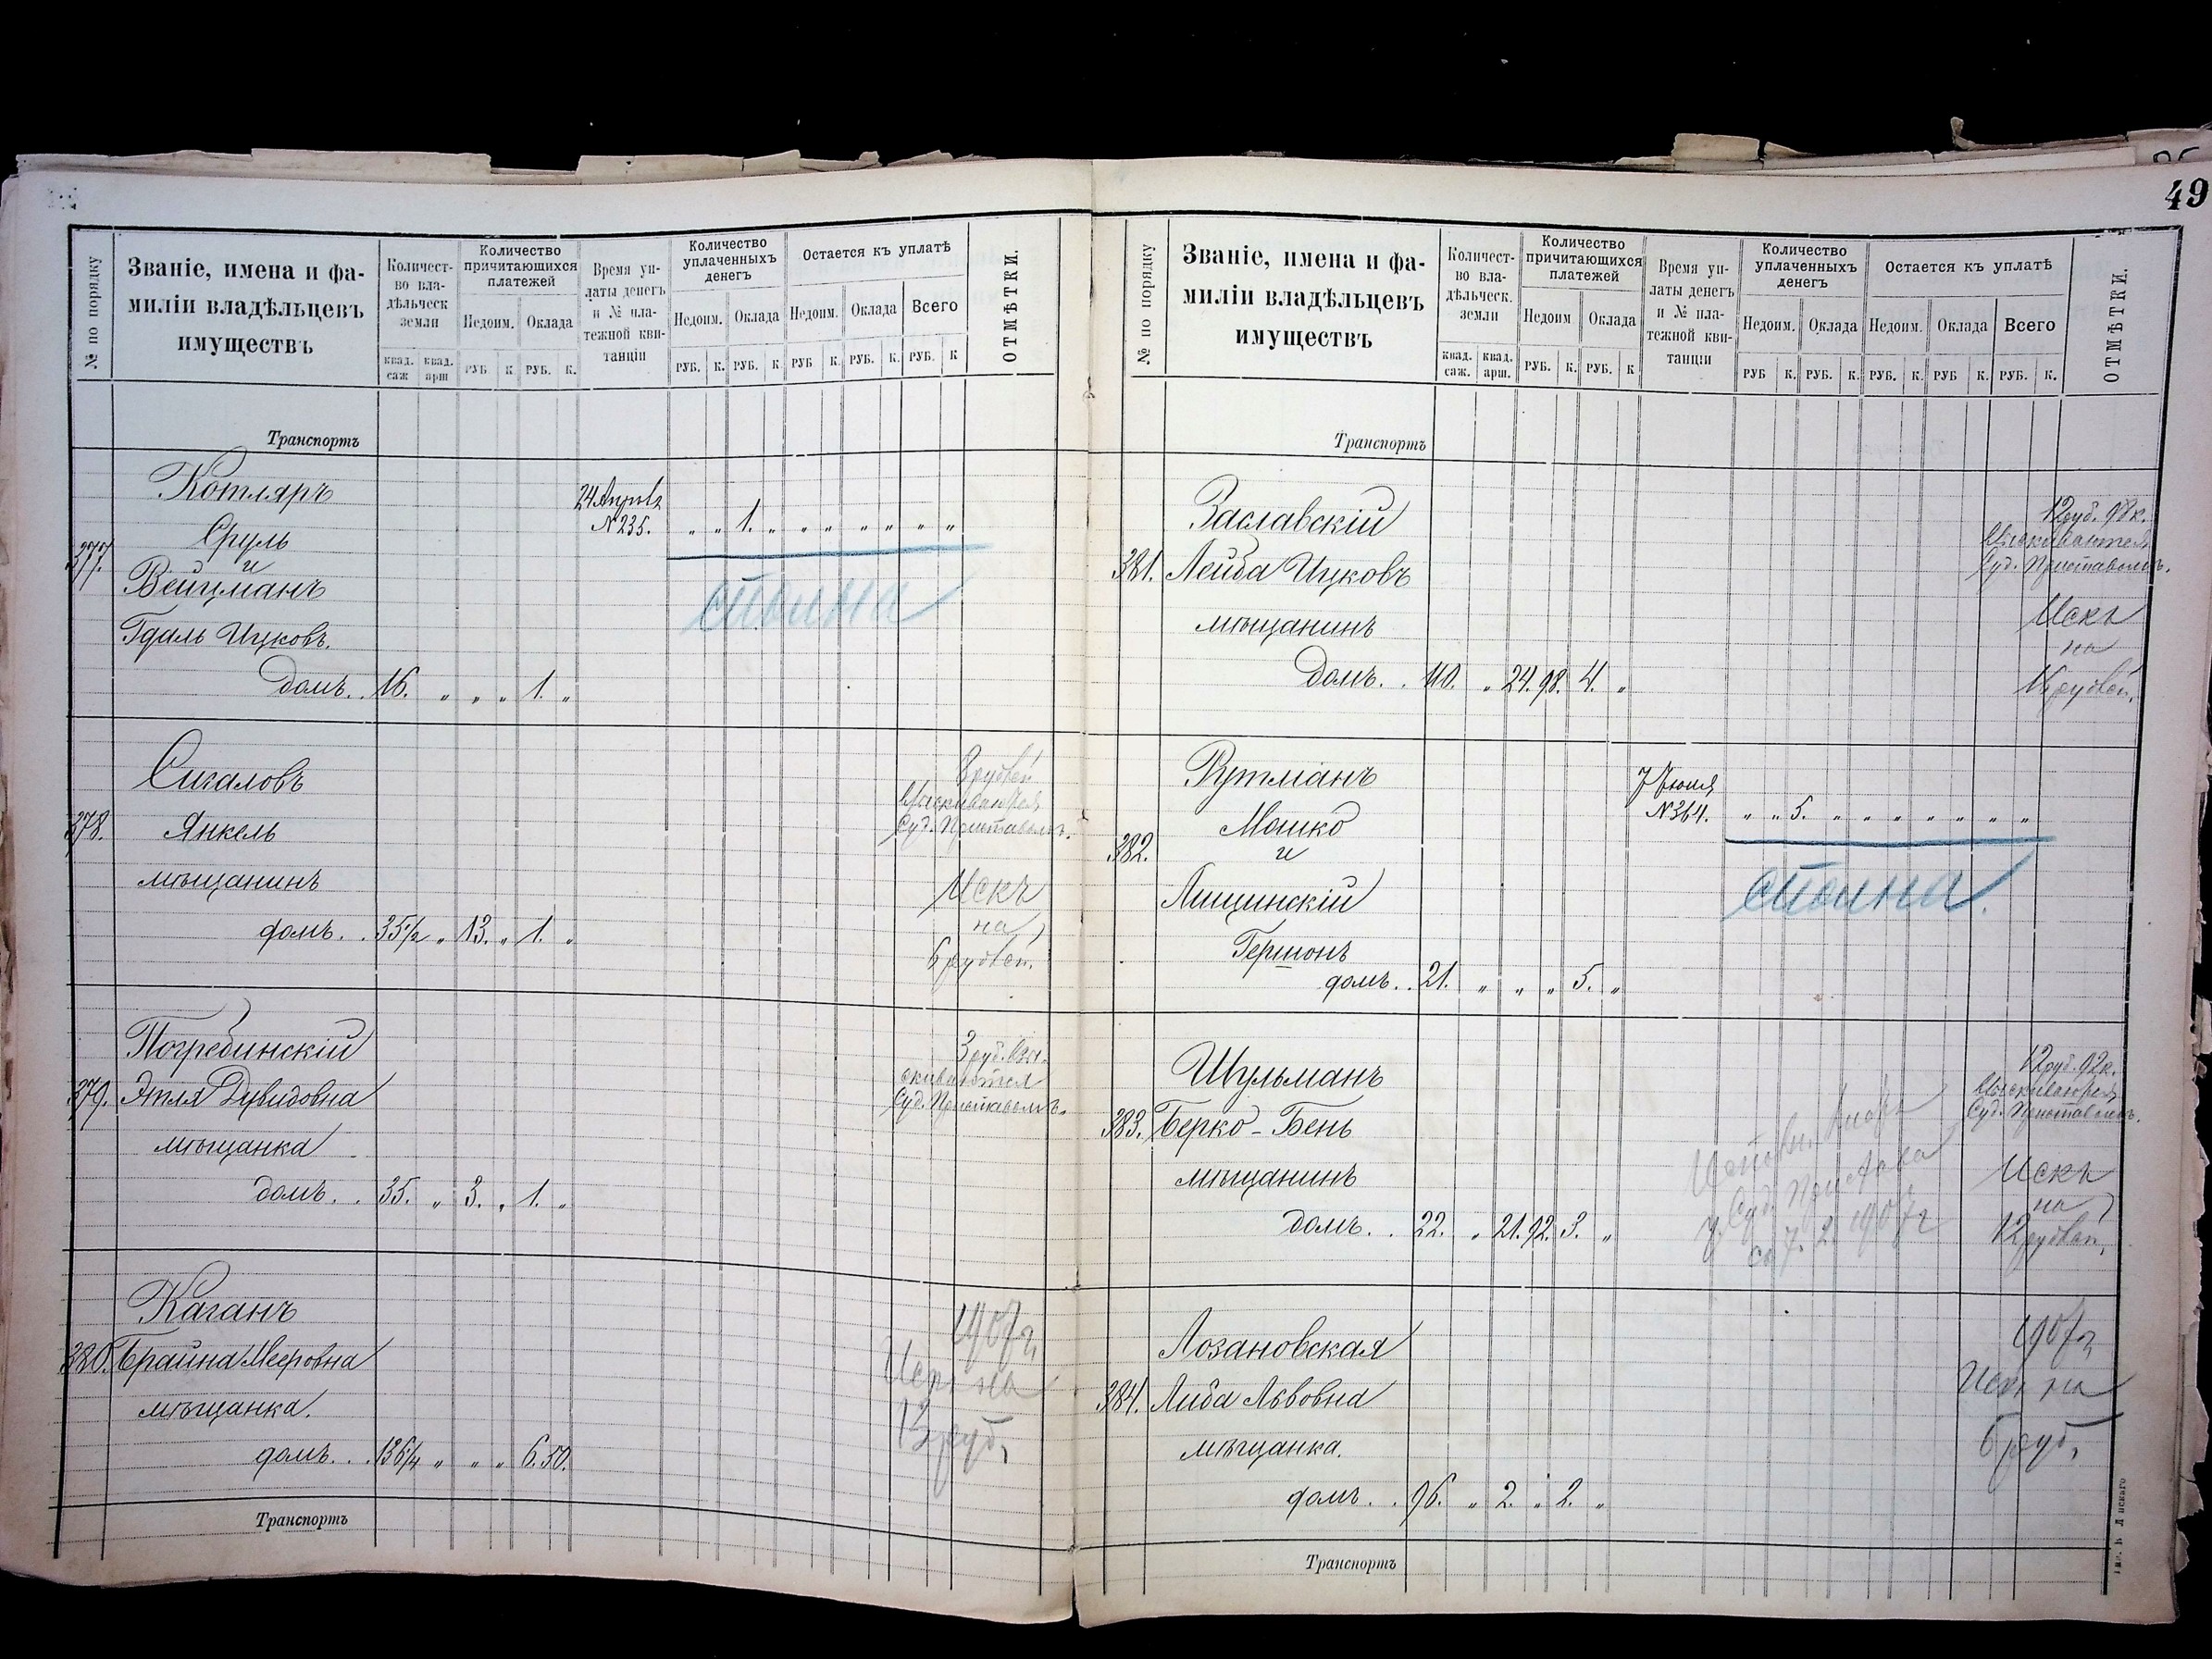 49
№ по порядку
Званіе, имена и фа-
миліи владѣльцевъ
имуществъ
Количест-
во вла-
дѣльческ
земли
квад. саж
квад. арш
Количество
причитающихся
платежей
Недоим.
Оклада
РУБ К РУБ. К.
Время уп-
латы денегъ
и № пла-
тежной кви-
танціи
Количество
уплаченныхъ
денегъ
Недоим.
Оклада
РУБ. К. РУБ. К
Остается къ уплатѣ
Недоим.
Оклада
Всего
РУБ К. РУБ. К. РУБ. К
ОТМѢТКИ.
Транспортъ
377.
Котляръ
Сруль
и
Вейцманъ
Гдаль Ицковъ.
домъ. . 16. „ „ „ 1. „
24 Апрѣля
№ 235. „ „ 1. „ „ „ „ „ „ „
378.
Сигаловъ
Янкель
мѣщанинъ
домъ. . 35½ „ 13. „ 1. „
рублей
взыскиваются
Суд. Приставомъ.
Искъ
на
6 рублей.
379.
Погребинскій
Этля Дувидовна
мѣщанка
домъ. . 35. „ 3. „ 1. „
3 руб. взы-
скиваются
Суд. Приставомъ.
380.
Каганъ
Брайна Мееровна
мѣщанка.
домъ. . 136¼ „ „ „ 6. 50.
1907 г.
Искъ на
13 руб.
Транспортъ
№ по порядку
Званіе, имена и фа-
миліи владѣльцевъ
имуществъ
Количест-
во вла-
дѣльческ.
земли
квад. саж.
квад. арш.
Количество
причитающихся
платежей
Недоим
Оклада
РУБ. К. РУБ. К
Время уп-
латы денегъ
и № пла-
тежной кви-
танціи
Количество
уплаченныхъ
денегъ
Недоим.
Оклада
РУБ К. РУБ. К.
Остается къ уплатѣ
Недоим.
Оклада
Всего
РУБ. К. РУБ К. РУБ. К.
ОТМѢТКИ.
Транспортъ
381.
Заславскій
Лейба Ицковъ
мѣщанинъ
домъ. . 110. „ 24. 98. 4. „
12 руб. 98 к.
взыскиваются
Суд. Приставомъ.
Искъ
на
рублей.
382.
Рутманъ
Мошко
и
Лищинскій
Гершонъ
домъ. . 21. „ „ „ 5. „
7 Іюня
№ 364. „ „ 5. „ „ „ „ „ „ „
383.
Шульманъ
Берко-Бень
мѣщанинъ
домъ. . 22. „ 21. 92. 3. „
у Суд. Пристава
1907 г
12 руб. 92 к.
взыскиваются
Суд. Приставомъ.
Искъ
на
12 рублей.
384.
Лозановская
Либа Львовна
мѣщанка.
домъ. . 96. „ 2. „ 2. „
1907 г
Искъ на
6 руб.
Транспортъ